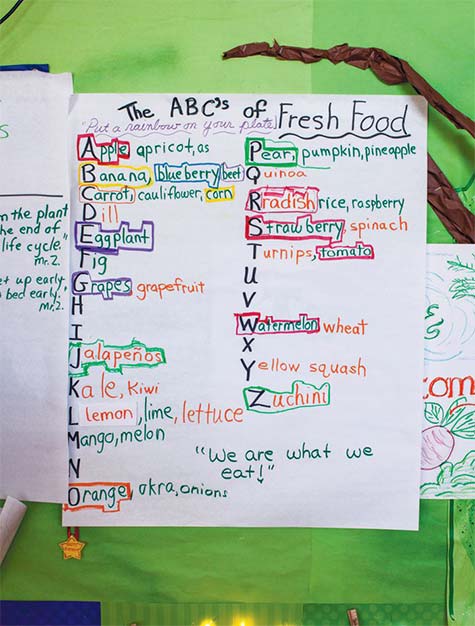 The ABC's of Fresh Food
"Put a rainbow on your plate"
Apple apricot, as
Banana, blueberry beet
Carrot, cauliflower, corn
Dill
Eggplant
Fig
Grapes grapefruit
H
I
Jalapeños
Kale, Kiwi
lemon, lime, lettuce
Mango, melon
N
Orange, okra, onions
Pear, pumpkin, pineapple
Quinoa
Rradish rice, raspberry
Strawberry, spinach
Turnips, tomato
U
V
Watermelon wheat
X
Yellow squash
Zuchini
"We are what we
eat!"
m the plant
he end of
life cycle."
mr. Z.
et up early-
o bed early.
mr. Z.
s
&
com